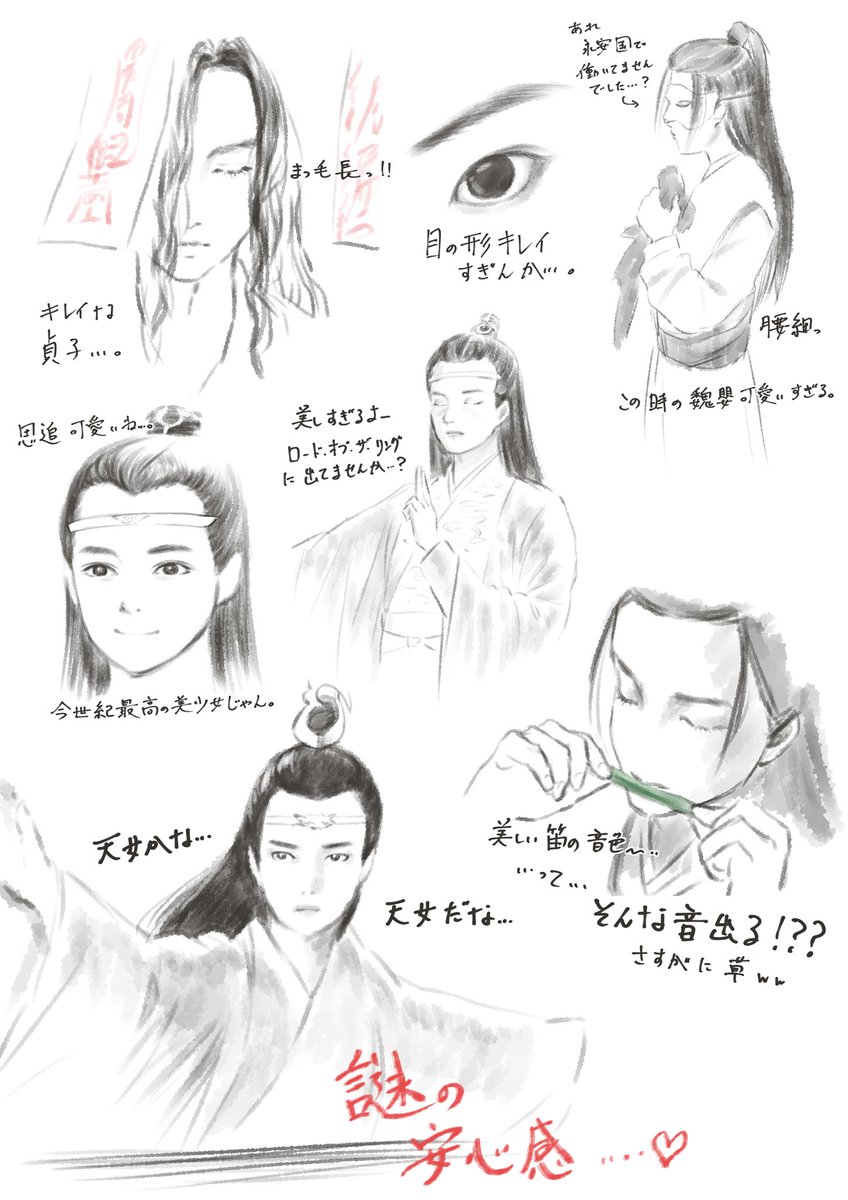 まつ毛長っ!!
キレイな
貞子…。
目の形キレイ
すぎんか…。
あれ
永安国で
働いてません
でした…?
腰細っ
この時の魏嬰可愛いすぎる。
思追可愛いね…。
今世紀最高の美少女じゃん。
美しすぎるよー
ロード・オブ・ザ・リング
に出てませんか…?
天女かな…
天女だな…
美しい笛の音色〜…
…って…
そんな音出る!??
さすがに草ww
謎の
安心感....♡